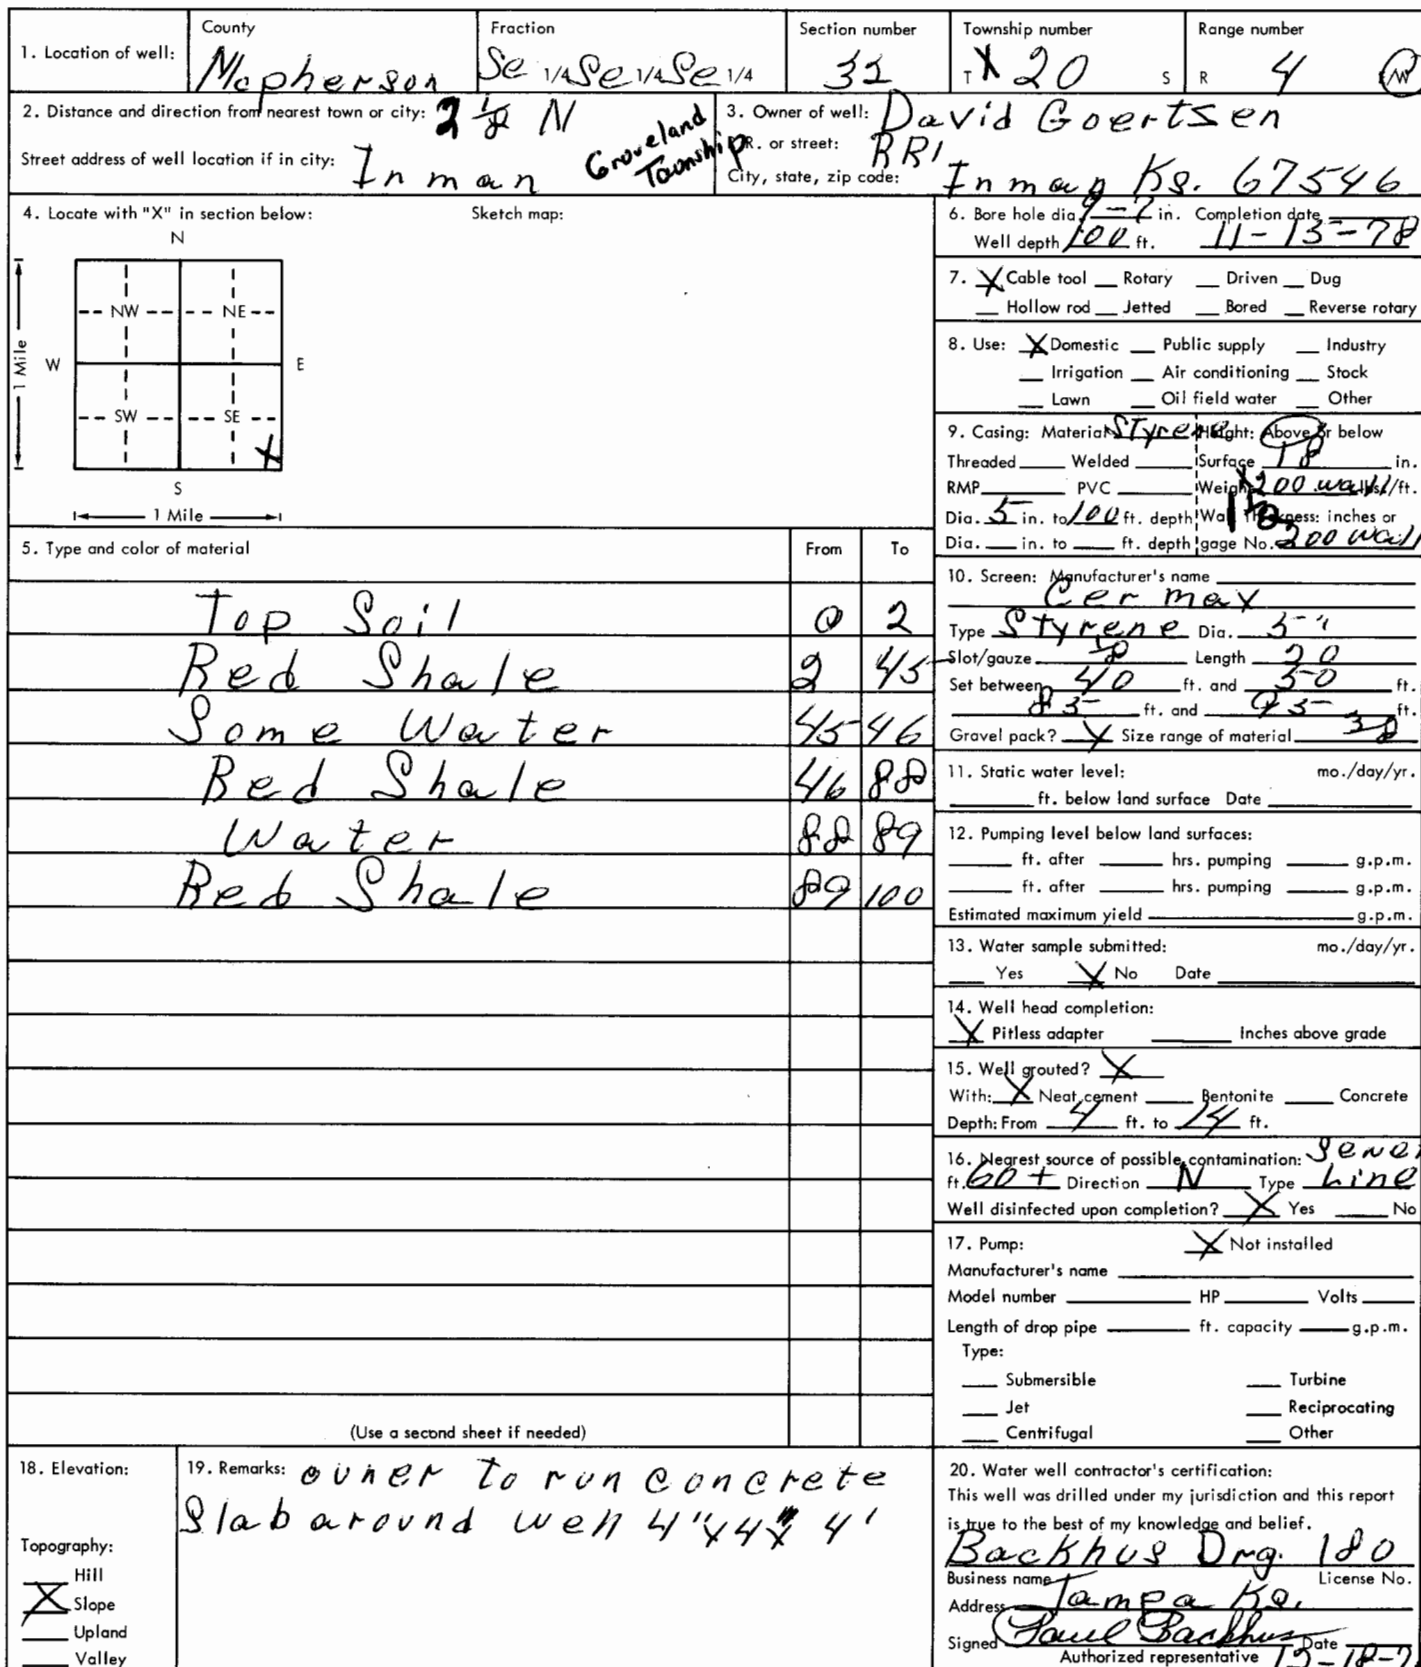 County Fraction Section number Township number Range number
1. Location of well: Mcpherson Se 1/4 Se 1/4 Se 1/4 T X 20 S R 4 E/W
2. Distance and direction from nearest town or city: 2 1/2 N
Groveland Township
Street address of well location if in city: Inman
3. Owner of well: David Goertsen
R.R. or street: RR1
City, state, zip code: Inman Ks. 67546
4. Locate with "X" in section below: Sketch map:
N
NW NE
W E
1 Mile
SW SE X
S
1 Mile
5. Type and color of material From To
Top Soil 0 2
Red Shale 2 45
Some Water 45 46
Red Shale 46 88
Water 88 89
Red Shale 89 100
(Use a second sheet if needed)
6. Bore hole dia. 9-7 in. Completion date
Well depth 100 ft. 11-13-78
7. X Cable tool Rotary Driven Dug
Hollow rod Jetted Bored Reverse rotary
8. Use: X Domestic Public supply Industry
Irrigation Air conditioning Stock
Lawn Oil field water Other
9. Casing: Material Styrene Height: Above or below
Threaded Welded Surface 18 in.
RMP PVC Weight 200 wall lbs./ft.
Dia. 5 in. to 100 ft. depth Wall Thickness: inches or
Dia. in. to ft. depth gage No. 200 wall
10. Screen: Manufacturer's name
Cer max
Type Styrene Dia. 5"
Slot/gauze 1/8 Length 20
Set between 40 ft. and 50 ft.
85 ft. and 95 ft.
Gravel pack? X Size range of material
11. Static water level: mo./day/yr.
ft. below land surface Date
12. Pumping level below land surfaces:
ft. after hrs. pumping g.p.m.
ft. after hrs. pumping g.p.m.
Estimated maximum yield g.p.m.
13. Water sample submitted: mo./day/yr.
Yes X No Date
14. Well head completion:
X Pitless adapter Inches above grade
15. Well grouted? X
With: X Neat cement Bentonite Concrete
Depth: From 4 ft. to 14 ft.
16. Nearest source of possible contamination: Sewer
ft. 60 + Direction N Type Line
Well disinfected upon completion? X Yes No
17. Pump: X Not installed
Manufacturer's name
Model number HP Volts
Length of drop pipe ft. capacity g.p.m.
Type:
Submersible Turbine
Jet Reciprocating
Centrifugal Other
18. Elevation:
Topography:
Hill
X Slope
Upland
Valley
19. Remarks: owner to run concrete
Slab around well 4"x4'x 4'
20. Water well contractor's certification:
This well was drilled under my jurisdiction and this report
is true to the best of my knowledge and belief.
Backhus Drg. 180
Business name License No.
Address Tampa Ks.
Signed Paul Backhus Date
Authorized representative